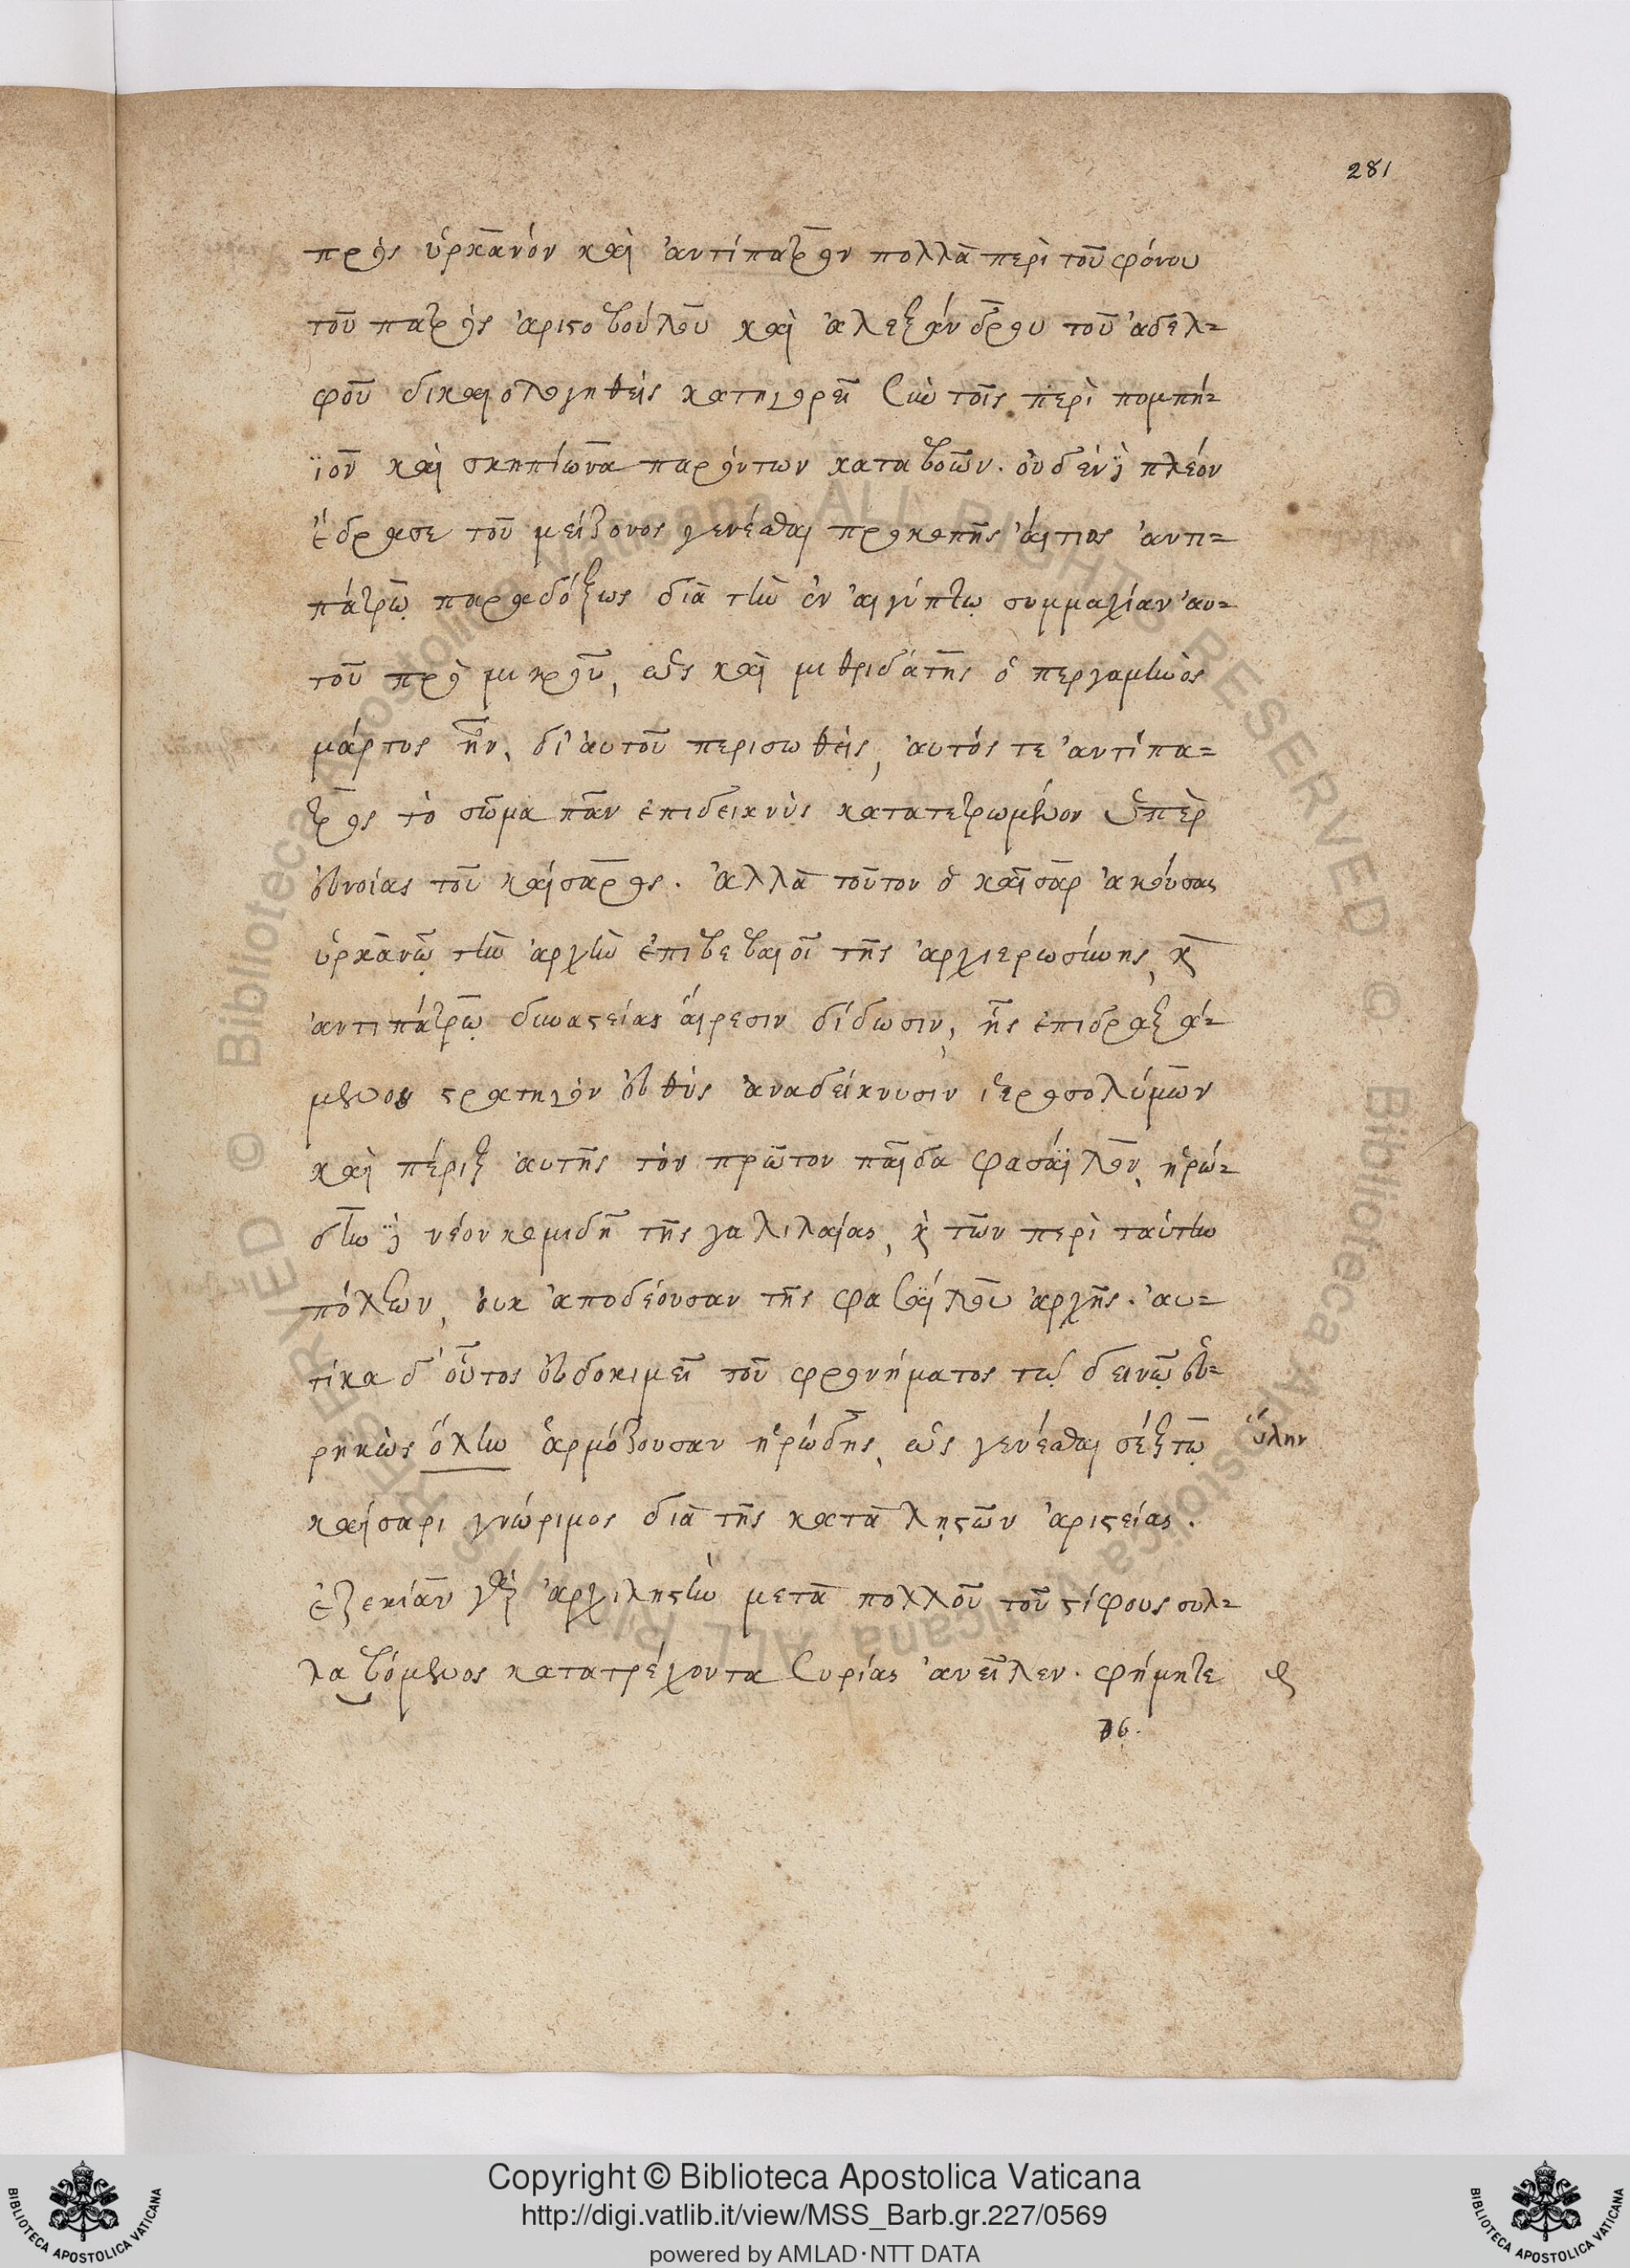 281
πρὸς ὑρκανόν καὶ ἀντίπατρον πολλὰ περὶ τοῦ φόνου
τοῦ πατρὸς ἀριστοβούλου καὶ ἀλεξάνδρου τοῦ ἀδελ=
φοῦ δικαιολογηθεὶς κατηγορεῖ σὺν τοῖς περὶ πομπή=
ϊον καὶ σκηπίωνα παρόντων καταβοῶν. οὐδὲν δὲ πλέον
ἔδρασε τοῦ μείζονος γενέσθαι προκοπῆς αἴτιος ἀντι=
πάτρῳ παραδόξως διὰ τὴν ἐν αἰγύπτῳ συμμαχίαν αὐ=
τοῦ πρὸ μικροῦ, ὡς καὶ μιθριδάτης ὁ περγαμηνὸς
μάρτυς ἦν, δι' αὐτοῦ περισωθείς, αὐτός τε ἀντίπα=
τρος τὸ σῶμα πᾶν ἐπιδεικνὺς κατατετρωμένον ὑπὲρ
εὐνοίας τοῦ καίσαρος. ἀλλὰ τοῦτον ὁ καῖσαρ ἀκούσας
ὑρκανῷ τὴν ἀρχὴν ἐπιβεβαιοῖ τῆς ἀρχιερωσύνης, κὶ
ἀντιπάτρῳ δυναστείας αἵρεσιν δίδωσιν, ἧς ἐπιδραξά=
μενον στρατηγὸν εὐθὺς ἀναδείκνυσιν ἱεροσολύμων
καὶ πέριξ αὐτῆς τὸν πρῶτον παῖδα φασάϊλον, ἡρώ=
δην δὲ νέον κομιδῆ τῆς γαλιλαίας, κὶ τῶν περὶ ταύτην
πόλεων, οὐκ ἀποδέουσαν τῆς φασαΐλου ἀρχῆς. αὐ=
τίκα δ' οὗτος εὐδοκιμεῖ τοῦ φρονήματος τῷ δεινῷ εὑ=
ρηκὼς ὅλην ἁρμόζουσαν ἡρώδης, ὡς γενέσθαι σέξτῳ
ὕλην
καίσαρι γνώριμος διὰ τῆς κατὰ λῃστῶν ἀριστείας.
ἐζεκίαν γὰρ ἀρχιληστὴν μετὰ πολλοῦ τοῦ στίφους συλ=
λαβόμενος κατατρέχοντα συρίας ἀνεῖλεν. φήμη τε
Copyright © Biblioteca Apostolica Vaticana
http://digi.vatlib.it/view/MSS_Barb.gr.227/0569
powered by AMLAD·NTT DATA
BIBLIOTECA APOSTOLICA VATICANA
BIBLIOTECA APOSTOLICA VATICANA